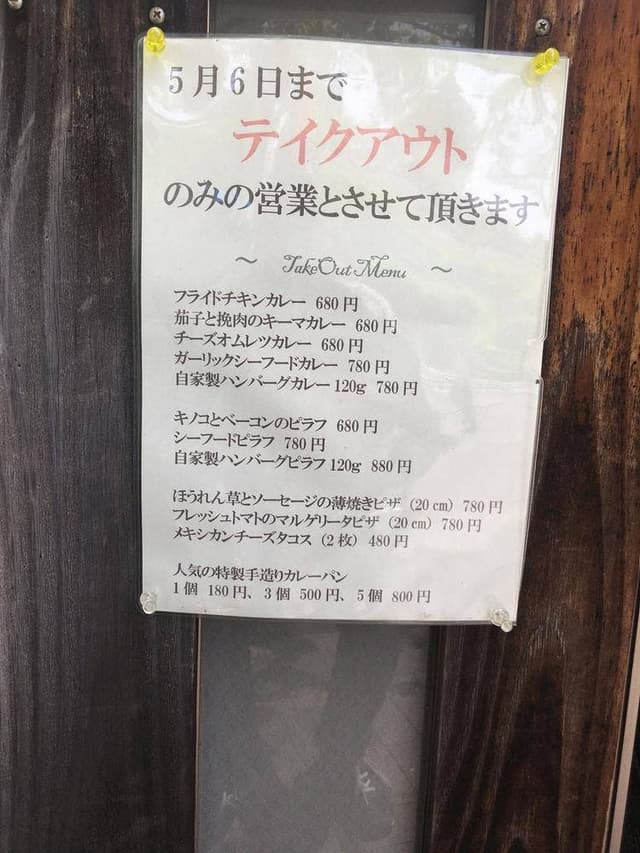 5月6日まで
テイクアウト
のみの営業とさせて頂きます
～ TakeOut Menu ～
フライドチキンカレー 680円
茄子と挽肉のキーマカレー 680円
チーズオムレツカレー 680円
ガーリックシーフードカレー 780円
自家製ハンバーグカレー120g 780円
キノコとベーコンのピラフ 680円
シーフードピラフ 780円
自家製ハンバーグピラフ120g 880円
ほうれん草とソーセージの薄焼きピザ（20㎝）780円
フレッシュトマトのマルゲリータピザ（20㎝）780円
メキシカンチーズタコス（2枚）480円
人気の特製手造りカレーパン
1個 180円、3個 500円、5個 800円